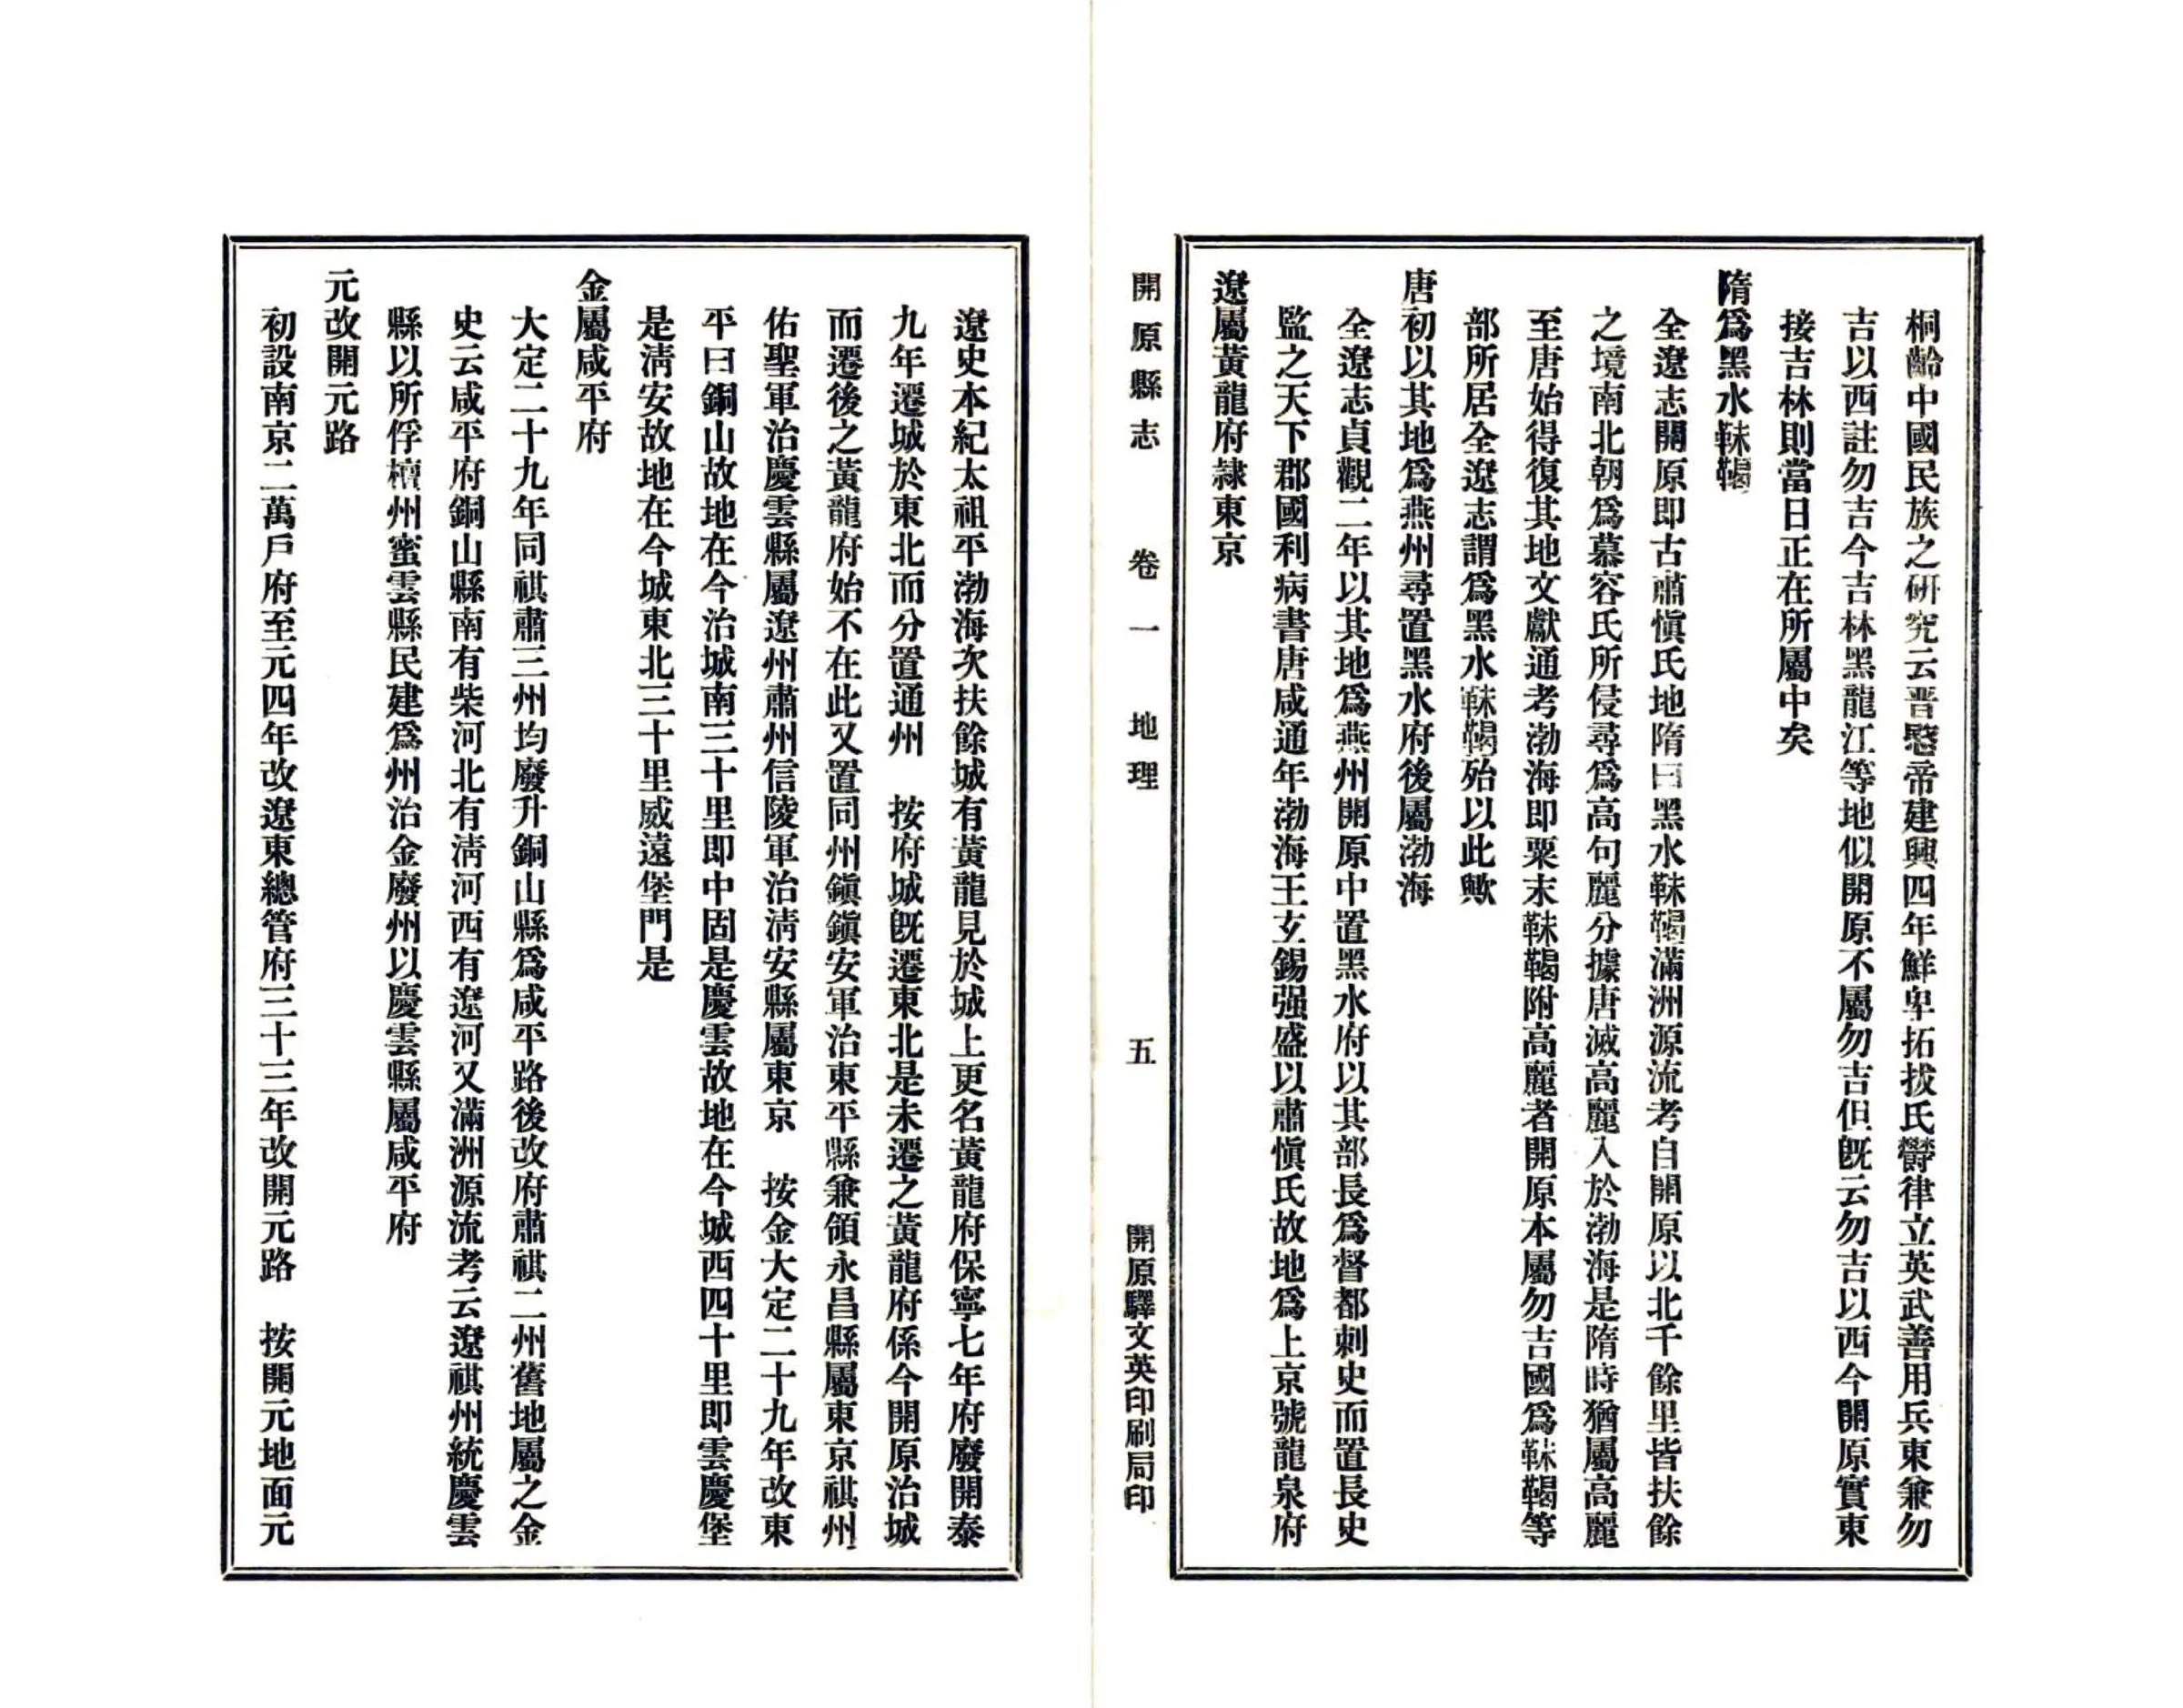 桐齡中國民族之研究云晋愍帝建興四年鮮卑拓拔氏欝律立英武善用兵東兼勿
吉以西註勿吉今吉林黑龍江等地似開原不屬勿吉但旣云勿吉以西今開原實東
接吉林則當日正在所屬中矣
隋爲黑水靺鞨
全遼志開原即古肅愼氏地隋曰黑水靺鞨滿洲源流考自開原以北千餘里皆扶餘
之境南北朝爲慕容氏所侵尋爲高句麗分據唐滅高麗入於渤海是隋時猶屬高麗
至唐始得復其地文獻通考渤海即粟末靺鞨附高麗者開原本屬勿吉國爲靺鞨等
部所居全遼志謂爲黑水靺鞨殆以此歟
唐初以其地爲燕州尋置黑水府後屬渤海
全遼志貞觀二年以其地爲燕州開原中置黑水府以其部長爲督都刺史而置長史
監之天下郡國利病書唐咸通年渤海王玄錫强盛以肅愼氏故地爲上京號龍泉府
遼屬黃龍府隷東京
開原縣志 卷一 地理 五 開原驛文英印刷局印
遼史本紀太祖平渤海次扶餘城有黃龍見於城上更名黃龍府保寧七年府廢開泰
九年遷城於東北而分置通州 按府城旣遷東北是未遷之黃龍府係今開原治城
而遷後之黃龍府始不在此又置同州鎭鎭安軍治東平縣兼領永昌縣屬東京祺州
佑聖軍治慶雲縣屬遼州肅州信陵軍治淸安縣屬東京 按金大定二十九年改東
平曰銅山故地在今治城南三十里即中固是慶雲故地在今城西四十里即雲慶堡
是淸安故地在今城東北三十里威遠堡門是
金屬咸平府
大定二十九年同祺肅三州均廢升銅山縣爲咸平路後改府肅祺二州舊地屬之金
史云咸平府銅山縣南有柴河北有淸河西有遼河又滿洲源流考云遼祺州統慶雲
縣以所俘檀州蜜雲縣民建爲州治金廢州以慶雲縣屬咸平府
元改開元路
初設南京二萬戶府至元四年改遼東總管府三十三年改開元路 按開元地面元